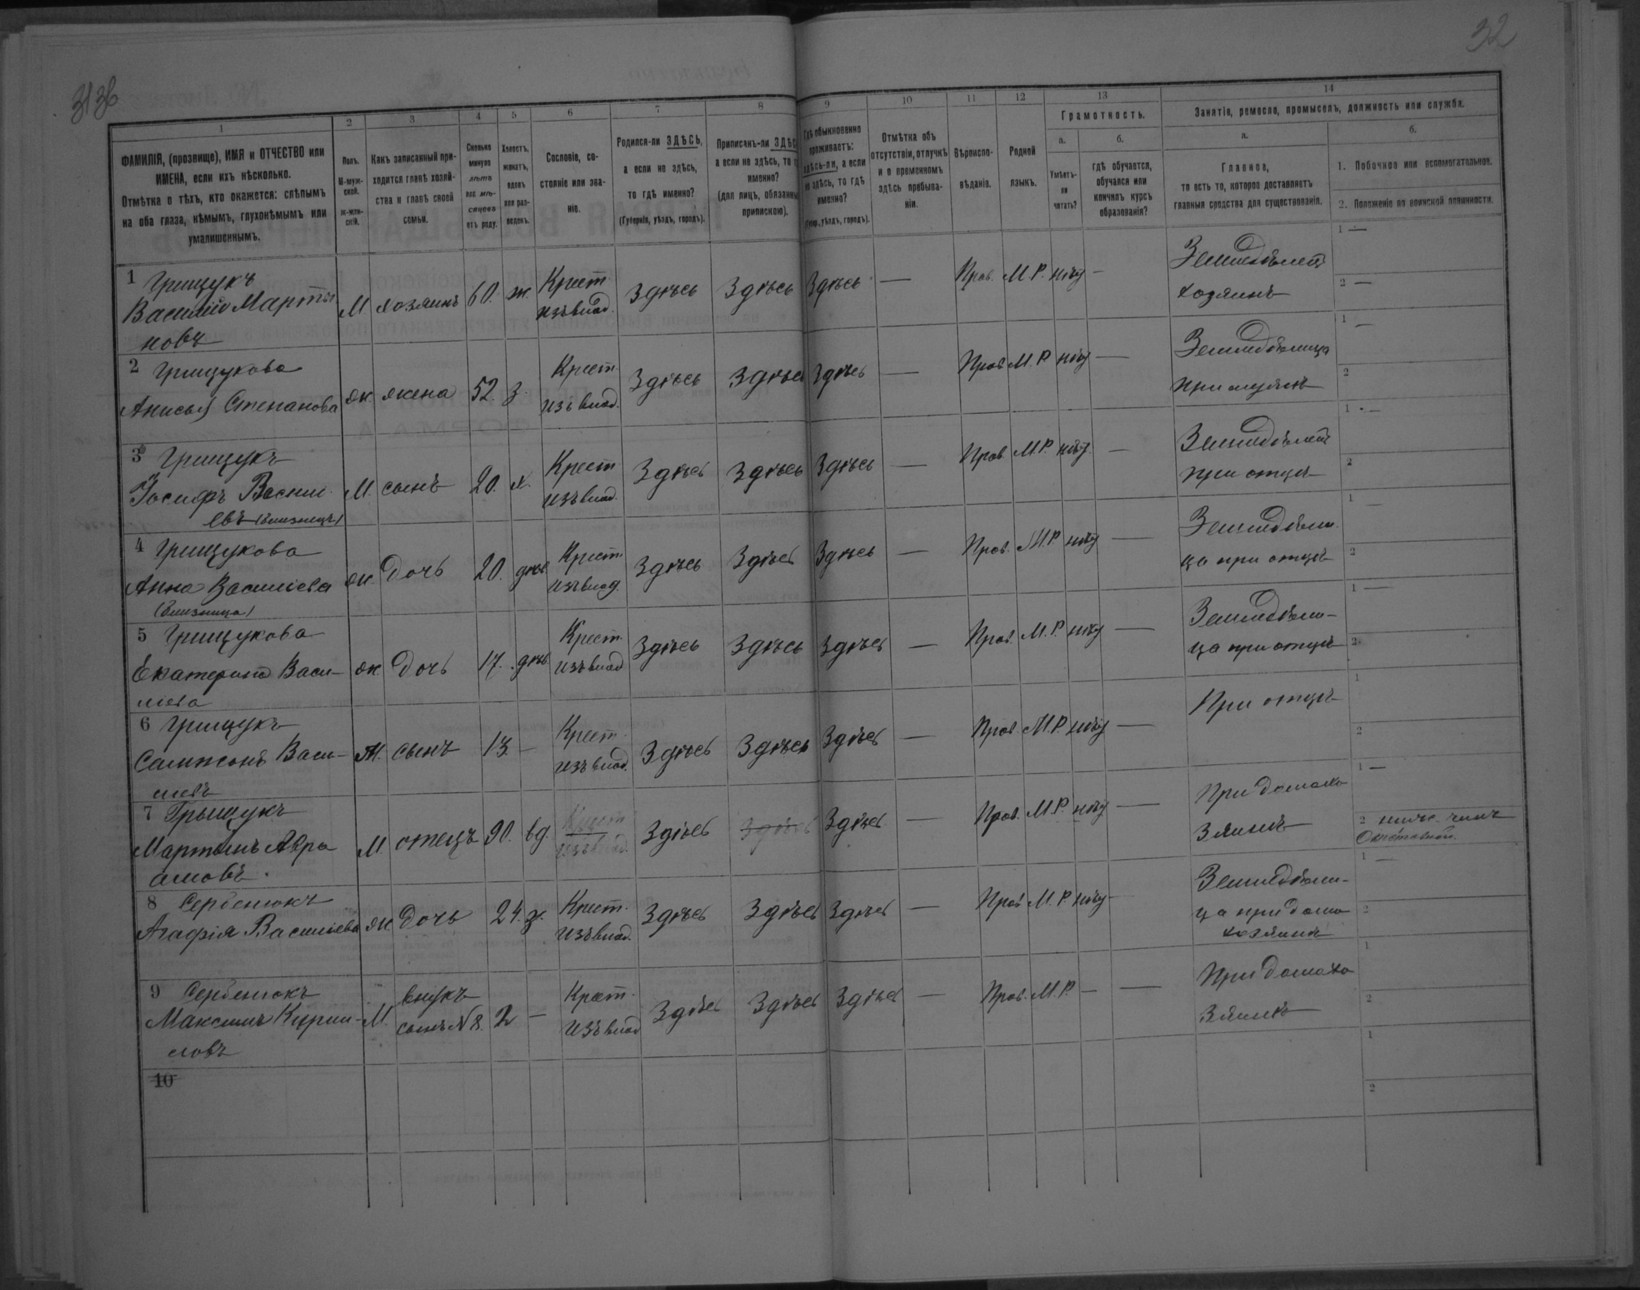 32
3136
1 2 3 4 5 6 7 8 9 10 11 12 13 14
ФАМИЛІЯ, (прозвище), ИМЯ и ОТЧЕСТВО или ИМЕНА, если ихъ нѣсколько.
Отмѣтка о тѣхъ, кто окажется: слѣпымъ на оба глаза, нѣмымъ, глухонѣмымъ или умалишеннымъ.
Полъ.
М-муж-
ской.
ж-жен-
скій.
Какъ записанный при-
ходится главѣ хозяй-
ства и главѣ своей
семьи.
Сколько
минуло
лѣтъ
или мѣ-
сяцевъ
отъ роду.
Холостъ,
женатъ,
вдовъ
или раз-
веденъ.
Сословіе, со-
стояніе или зва-
ніе.
Родился-ли ЗДѢСЬ,
а если не здѣсь,
то гдѣ именно?
(Губернія, уѣздъ, городъ).
Приписанъ-ли ЗДѢСЬ,
а если не здѣсь, то гдѣ
именно?
(для лицъ, обязанныхъ
припискою).
Гдѣ обыкновенно
проживаетъ:
здѣсь-ли, а если
не здѣсь, то гдѣ
именно?
(Губер., уѣздъ, городъ).
Отмѣтка объ
отсутствіи, отлучкѣ
и о временномъ
здѣсь пребыва-
ніи.
Вѣроиспо-
вѣданіе.
Родной
языкъ.
Грамотность.
а.
Умѣетъ-
ли
читать?
б.
гдѣ обучается,
обучался или
кончилъ курсъ
образованія?
Занятіе, ремесло, промыселъ, должность или служба.
а.
Главное,
то есть то, которое доставляетъ
главныя средства для существованія.
б.
1. Побочное или вспомогательное.
2. Положеніе по воинской повинности.
1 Грищукъ
Василій Марты
новъ
М хозяинъ 60. ж. Крест. изъ влад. Здѣсь Здѣсь Здѣсь — Прав. М.Р. нѣту — Земледѣлецъ хозяинъ 1 — 2 —
2 Грищукова
Анисья Степанова
ж жена 52 з. Крест. изъ влад. Здѣсь Здѣсь Здѣсь — Прав. М.Р. нѣту — Земледѣлица при мужѣ 1 — 2
3 Грищукъ
Іосифъ Васил
евъ (близнецъ)
М. сынъ 20. х. Крест. изъ влад. Здѣсь Здѣсь Здѣсь — Прав. М.Р. нѣту — Земледѣлецъ при отцѣ 1 — 2
4 Грищукова
Анна Василіева
(близница)
ж дочь 20. дѣв. Крест. изъ влад. Здѣсь Здѣсь Здѣсь — Прав. М.Р. нѣту — Земледѣли-
ца при отцѣ 1 — 2
5 Грищукова
Екатерина Васи-
лиева
ж дочь 17. дѣв. Крест. изъ влад. Здѣсь Здѣсь Здѣсь — Прав. М.Р. нѣту — Земледѣли-
ца при отцѣ 1 — 2
6 Грищукъ
Сампсонъ Васи-
лиевъ
М. сынъ 13. — Крест. изъ влад. Здѣсь Здѣсь Здѣсь — Прав. М.Р. нѣту — При отцѣ 1 2
7 Грыщукъ
Мартынъ Авра
амовъ.
М. отецъ 90. вд. Крест. изъ влад. Здѣсь Здѣсь Здѣсь — Прав. М.Р. нѣту — При домохо
зяинѣ 1 — 2 нижн. чинъ
Отставной.
8 Сербенюкъ
Агафія Василіева
ж дочь 24. з. Крест. изъ влад. Здѣсь Здѣсь Здѣсь — Прав. М.Р. нѣту — Земледѣли-
ца при домо
хозяинѣ 1 — 2
9 Сербенюкъ
Максимъ Кирил-
ловъ
М. внукъ
сынъ №8. 2 — Крест. изъ влад. Здѣсь Здѣсь Здѣсь — Прав. М.Р. — — При домохо
зяинѣ 1 2
10
1
2